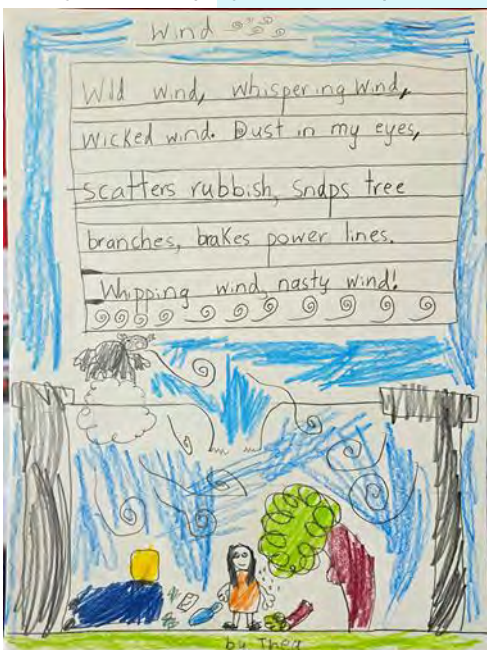 Wind
Wild wind, whispering wind,
wicked wind. Dust in my eyes,
scatters rubbish, snaps tree
branches, brakes power lines.
Whipping wind, nasty wind!
by Thea